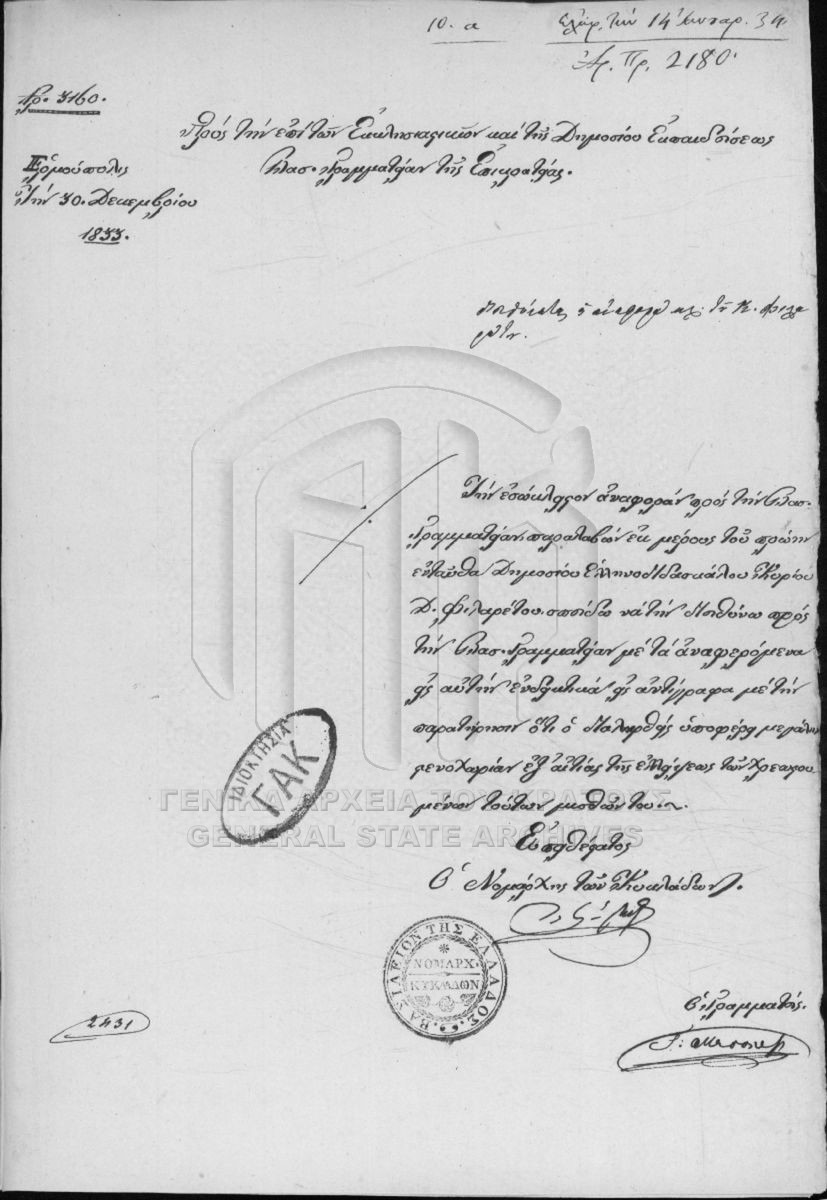 10. α
Ἐλήφ. τὴν 14 Ἰανουαρ. 34
Ἀρ. Πρ. 2180.
Ἀρ. 3160.
Πρὸς τὴν ἐπὶ τῶν Ἐκκλησιαστικῶν καὶ τῆς Δημοσίου Ἐκπαιδεύσεως
Βασ. Γραμματείαν τῆς Ἐπικρατείας.
Ἑρμούπολις
τὴν 30. Δεκεμβρίου
1833.
Τὴν ἐσώκλειστον ἀναφορὰν πρὸς τὴν Βασ.
Γραμματείαν παραλαβὼν ἐκ μέρους τοῦ πρώην
ἐνταῦθα Δημοσίου Ἑλληνοδιδασκάλου Κυρίου
Δ. Φιλαρέτου σπεύδω νὰ τὴν διευθύνω πρὸς
τὴν Βασ. Γραμματείαν μὲ τὰ ἀναφερόμενα
εἰς αὐτὴν ἐνδεικτικὰ εἰς ἀντίγραφα μὲ τὴν
παρατήρησιν ὅτι ὁ διαληφθεὶς ὑποφέρει μεγάλην
στενοχωρίαν ἐξ αἰτίας τῆς ἐλλείψεως τῶν χρεωστου
μένων τούτων μισθῶν του.
Εὐπειθέστατος
Ὁ Νομάρχης τῶν Κυκλάδων
ΒΑΣΙΛΕΙΟΝ ΤΗΣ ΕΛΛΑΔΟΣ
ΝΟΜΑΡΧ.
ΚΥΚΛΑΔΩΝ
Ὁ Γραμματεύς.
2431
ΙΔΙΟΚΤΗΣΙΑ
ΓΑΚ
ΓΕΝΙΚΑ ΑΡΧΕΙΑ ΤΟΥ ΚΡΑΤΟΥΣ
GENERAL STATE ARCHIVES